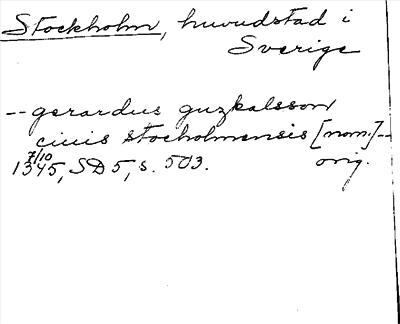 Stockholm, huvudstad i
Sverige
-- gerardus guzkalsson
ciuis stocholmensis [nom.] --
7/10
1345, SD 5, s. 503. orig.